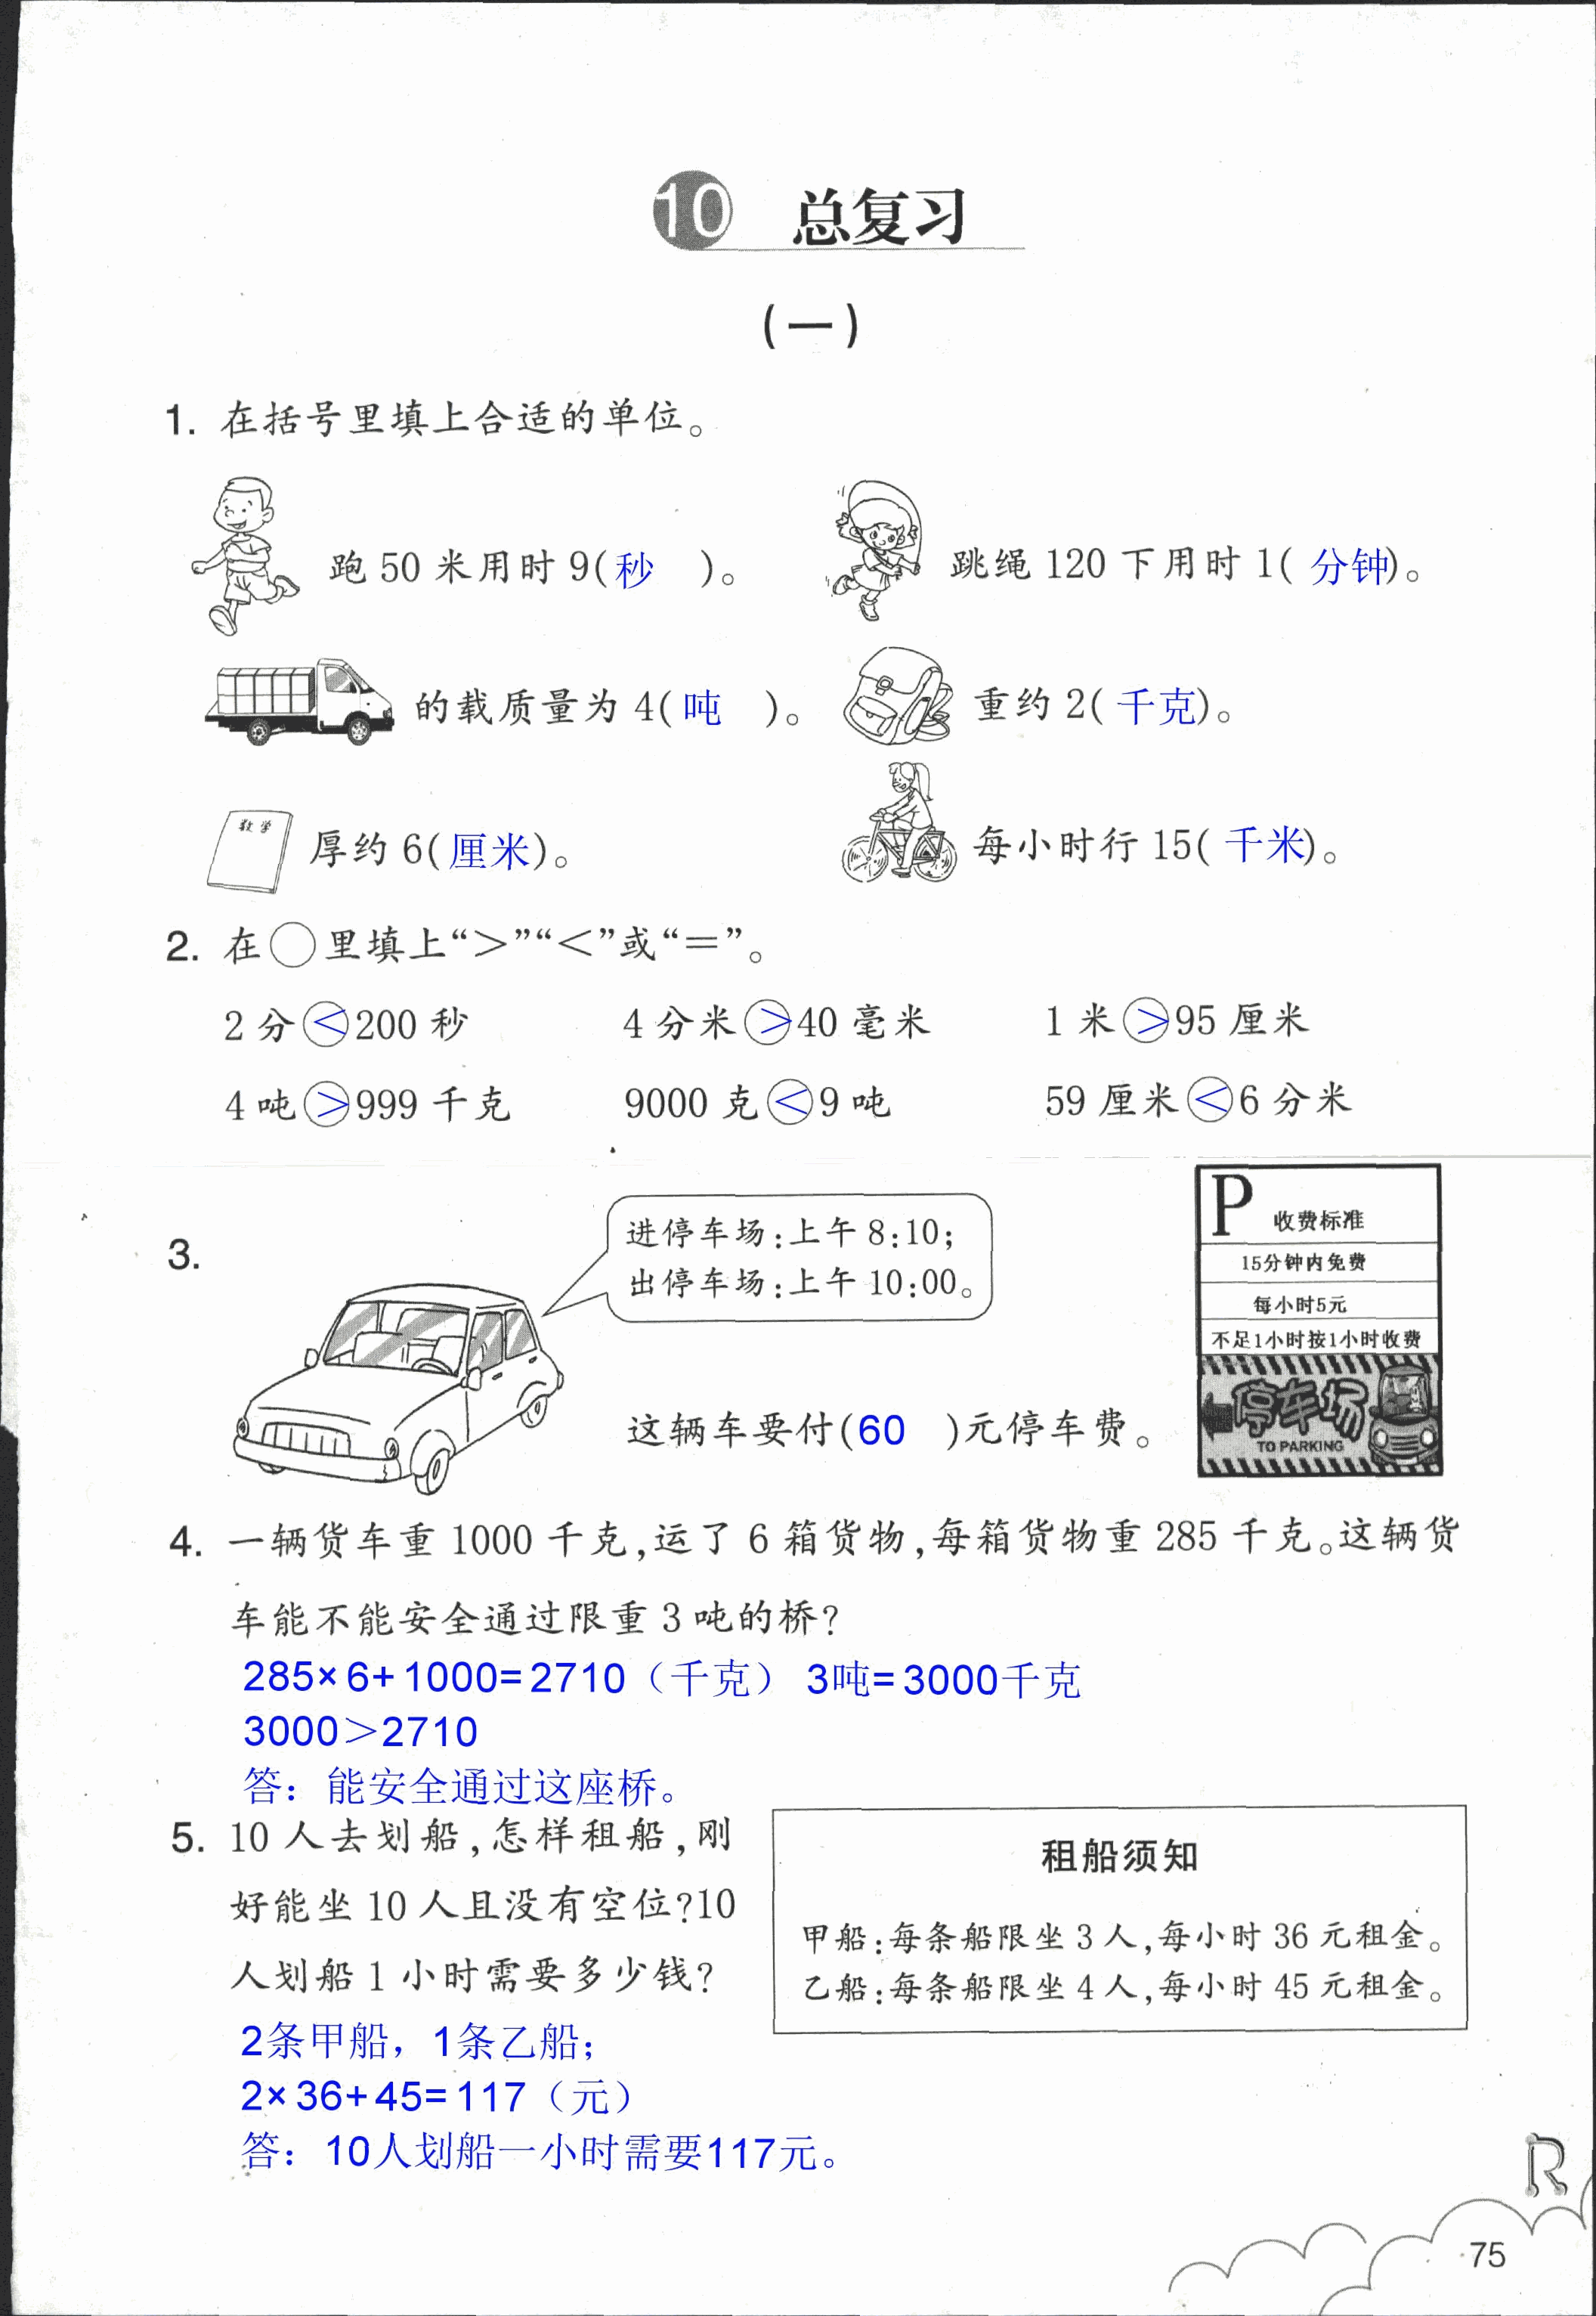 10 总复习
(一)
1. 在括号里填上合适的单位。
跑 50 米用时 9(秒 )。 跳绳 120 下用时 1( 分钟)。
的载质量为 4( 吨 )。 重约 2( 千克)。
数学 厚约 6( 厘米)。 每小时行 15( 千米)。
2. 在○里填上“>”“<”或“=”。
2 分<200 秒 4 分米>40 毫米 1 米>95 厘米
4 吨>999 千克 9000 克<9 吨 59 厘米<6 分米
3.
进停车场:上午 8:10;
出停车场:上午 10:00。
P 收费标准
15分钟内免费
每小时5元
不足1小时按1小时收费
停车场
TO PARKING
这辆车要付(60 )元停车费。
4. 一辆货车重 1000 千克,运了 6 箱货物,每箱货物重 285 千克。这辆货
车能不能安全通过限重 3 吨的桥?
285×6+1000=2710（千克） 3吨=3000千克
3000＞2710
答：能安全通过这座桥。
5. 10 人去划船,怎样租船,刚
好能坐 10 人且没有空位?10
人划船 1 小时需要多少钱?
租船须知
甲船:每条船限坐 3 人,每小时 36 元租金。
乙船:每条船限坐 4 人,每小时 45 元租金。
2条甲船，1条乙船；
2×36+45=117（元）
答：10人划船一小时需要117元。
R
75